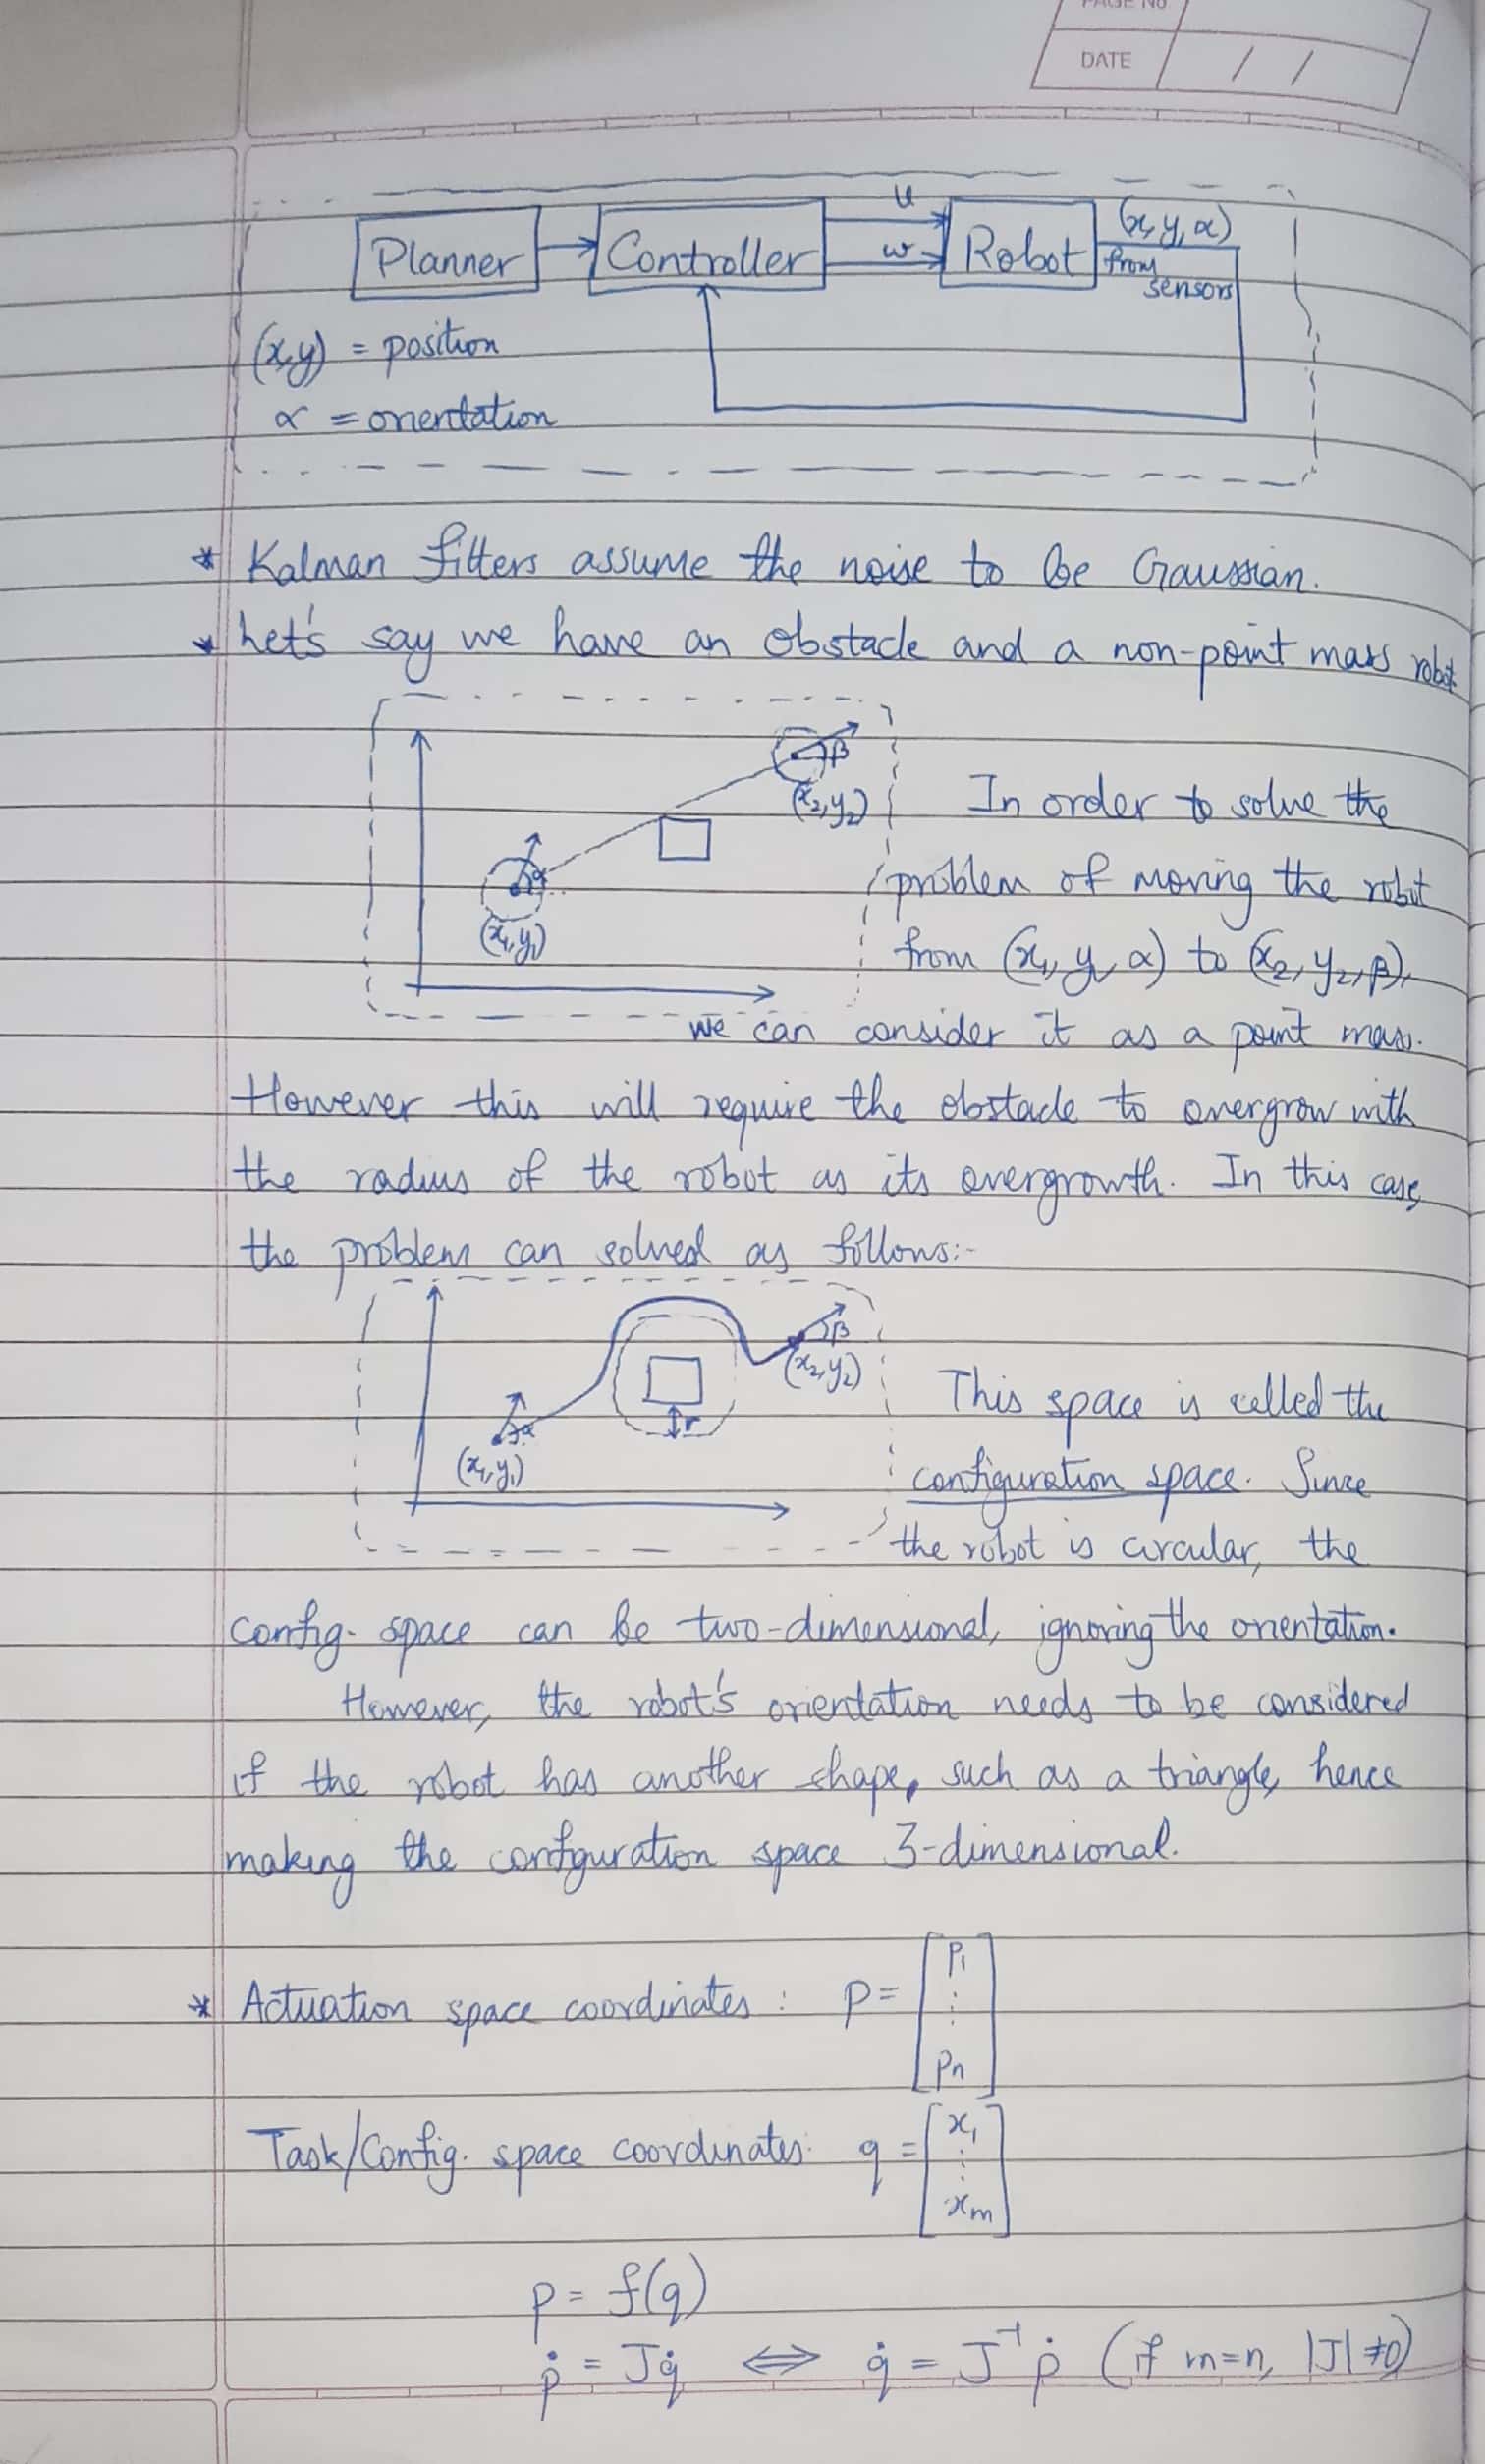 PAGE No
DATE / /
Planner Controller u w Robot (x, y, α) from sensors
(x,y) = position
α = orientation
* Kalman filters assume the noise to be Gaussian.
* Let's say we have an obstacle and a non-point mass robot.
β
(x₂,y₂)
α
(x₁,y₁)
In order to solve the
problem of moving the robot
from (x₁, y₁, α) to (x₂, y₂, β),
we can consider it as a point mass.
However this will require the obstacle to overgrow with
the radius of the robot as its overgrowth. In this case,
the problem can solved as follows:-
β
(x₂,y₂)
r
α
(x₁,y₁)
This space is called the
configuration space. Since
the robot is circular, the
config. space can be two-dimensional, ignoring the orientation.
However, the robot's orientation needs to be considered
if the robot has another shape, such as a triangle, hence
making the configuration space 3-dimensional.
* Actuation space coordinates : p = [p₁ ⋮ pn]
Task/Config. space coordinates: q = [x₁ ⋮ xm]
p = f(q)
ṗ = Jq̇ ⇔ q̇ = J⁻¹ ṗ (if m=n, |J| ≠0)